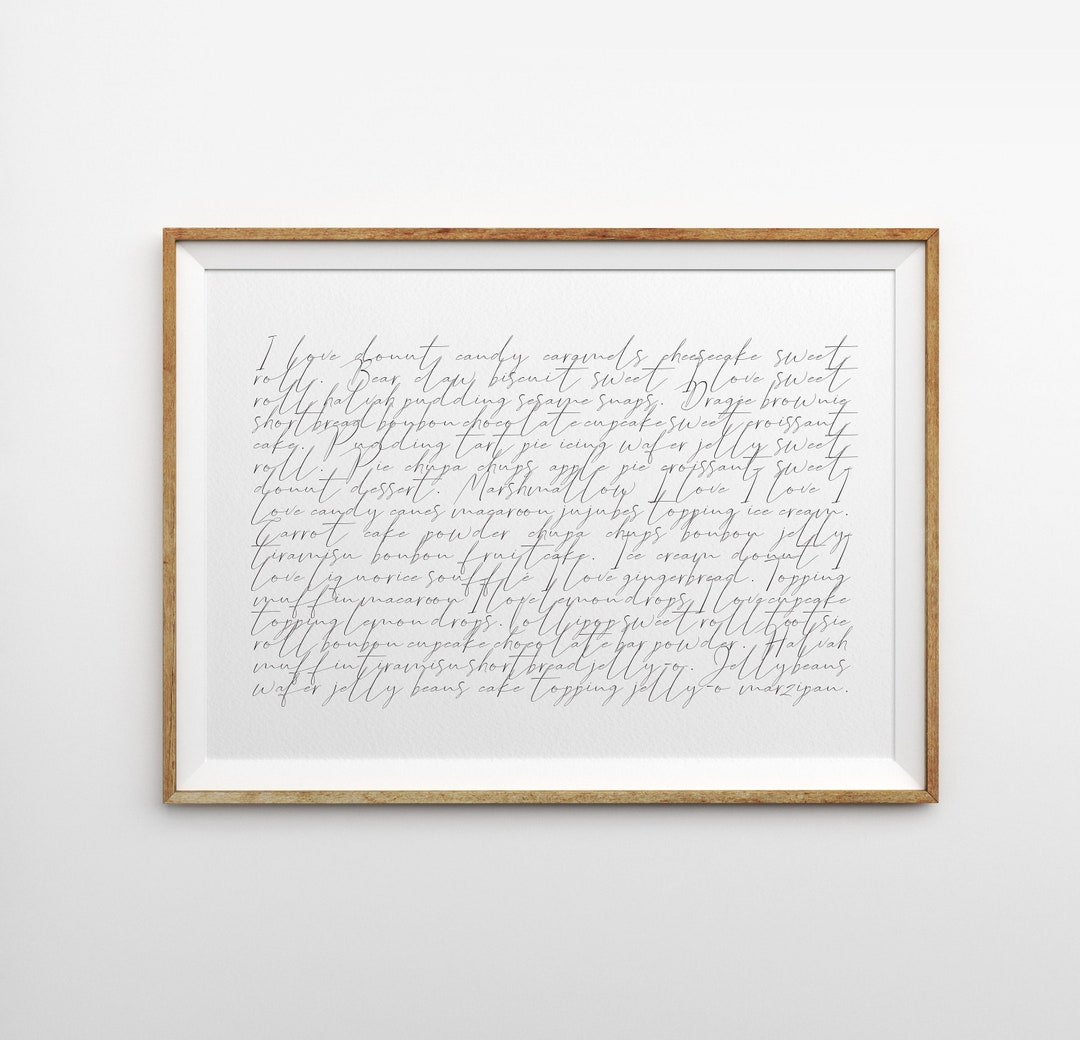 I love donut candy caramels cheesecake sweet
roll. Bear claw biscuit sweet I love sweet
roll halvah pudding sesame snaps. Dragée brownie
shortbread bonbon chocolate cupcake sweet croissant
cake. Pudding tart pie icing wafer jelly sweet
roll. Pie chupa chups apple pie croissant sweet
donut dessert. Marshmallow I love I love I
love candy canes macaroon jujubes topping ice cream.
Carrot cake powder chupa chups bonbon jelly
tiramisu bonbon fruitcake. Ice cream donut I
love liquorice soufflé I love gingerbread. Topping
muffin macaroon I love lemon drops I love cupcake
topping lemon drops. Lollipop sweet roll tootsie
roll bonbon cupcake chocolate bar powder. Halvah
muffin tiramisu shortbread jelly-o. Jelly beans
wafer jelly beans cake topping jelly-o marzipan.